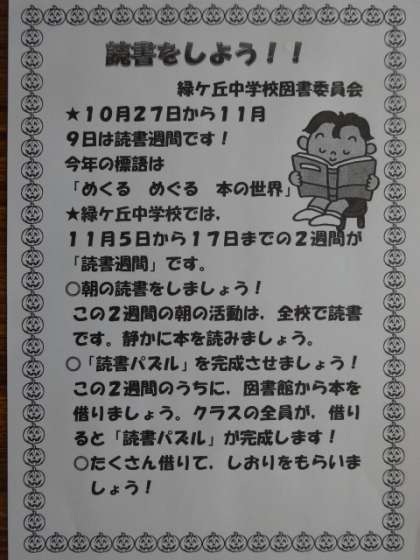 読書をしよう！！
緑ケ丘中学校図書委員会
★１０月２７日から１１月
９日は読書週間です！
今年の標語は
「めくる　めぐる　本の世界」
★緑ケ丘中学校では，
１１月５日から１７日までの２週間が
「読書週間」です。
○朝の読書をしましょう！
この２週間の朝の活動は，全校で読書
です。静かに本を読みましょう。
○「読書パズル」を完成させましょう！
この２週間のうちに，図書館から本を
借りましょう。クラスの全員が，借り
ると「読書パズル」が完成します！
○たくさん借りて，しおりをもらいま
しょう！